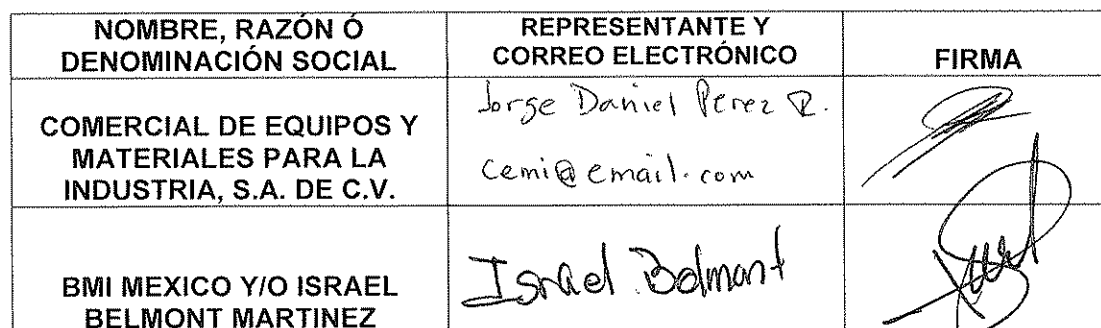 NOMBRE, RAZÓN Ó
DENOMINACIÓN SOCIAL
REPRESENTANTE Y
CORREO ELECTRÓNICO
FIRMA
COMERCIAL DE EQUIPOS Y
MATERIALES PARA LA
INDUSTRIA, S.A. DE C.V.
Jorge Daniel Perez R.
cemi@email.com
BMI MEXICO Y/O ISRAEL
BELMONT MARTINEZ
Israel Belmont